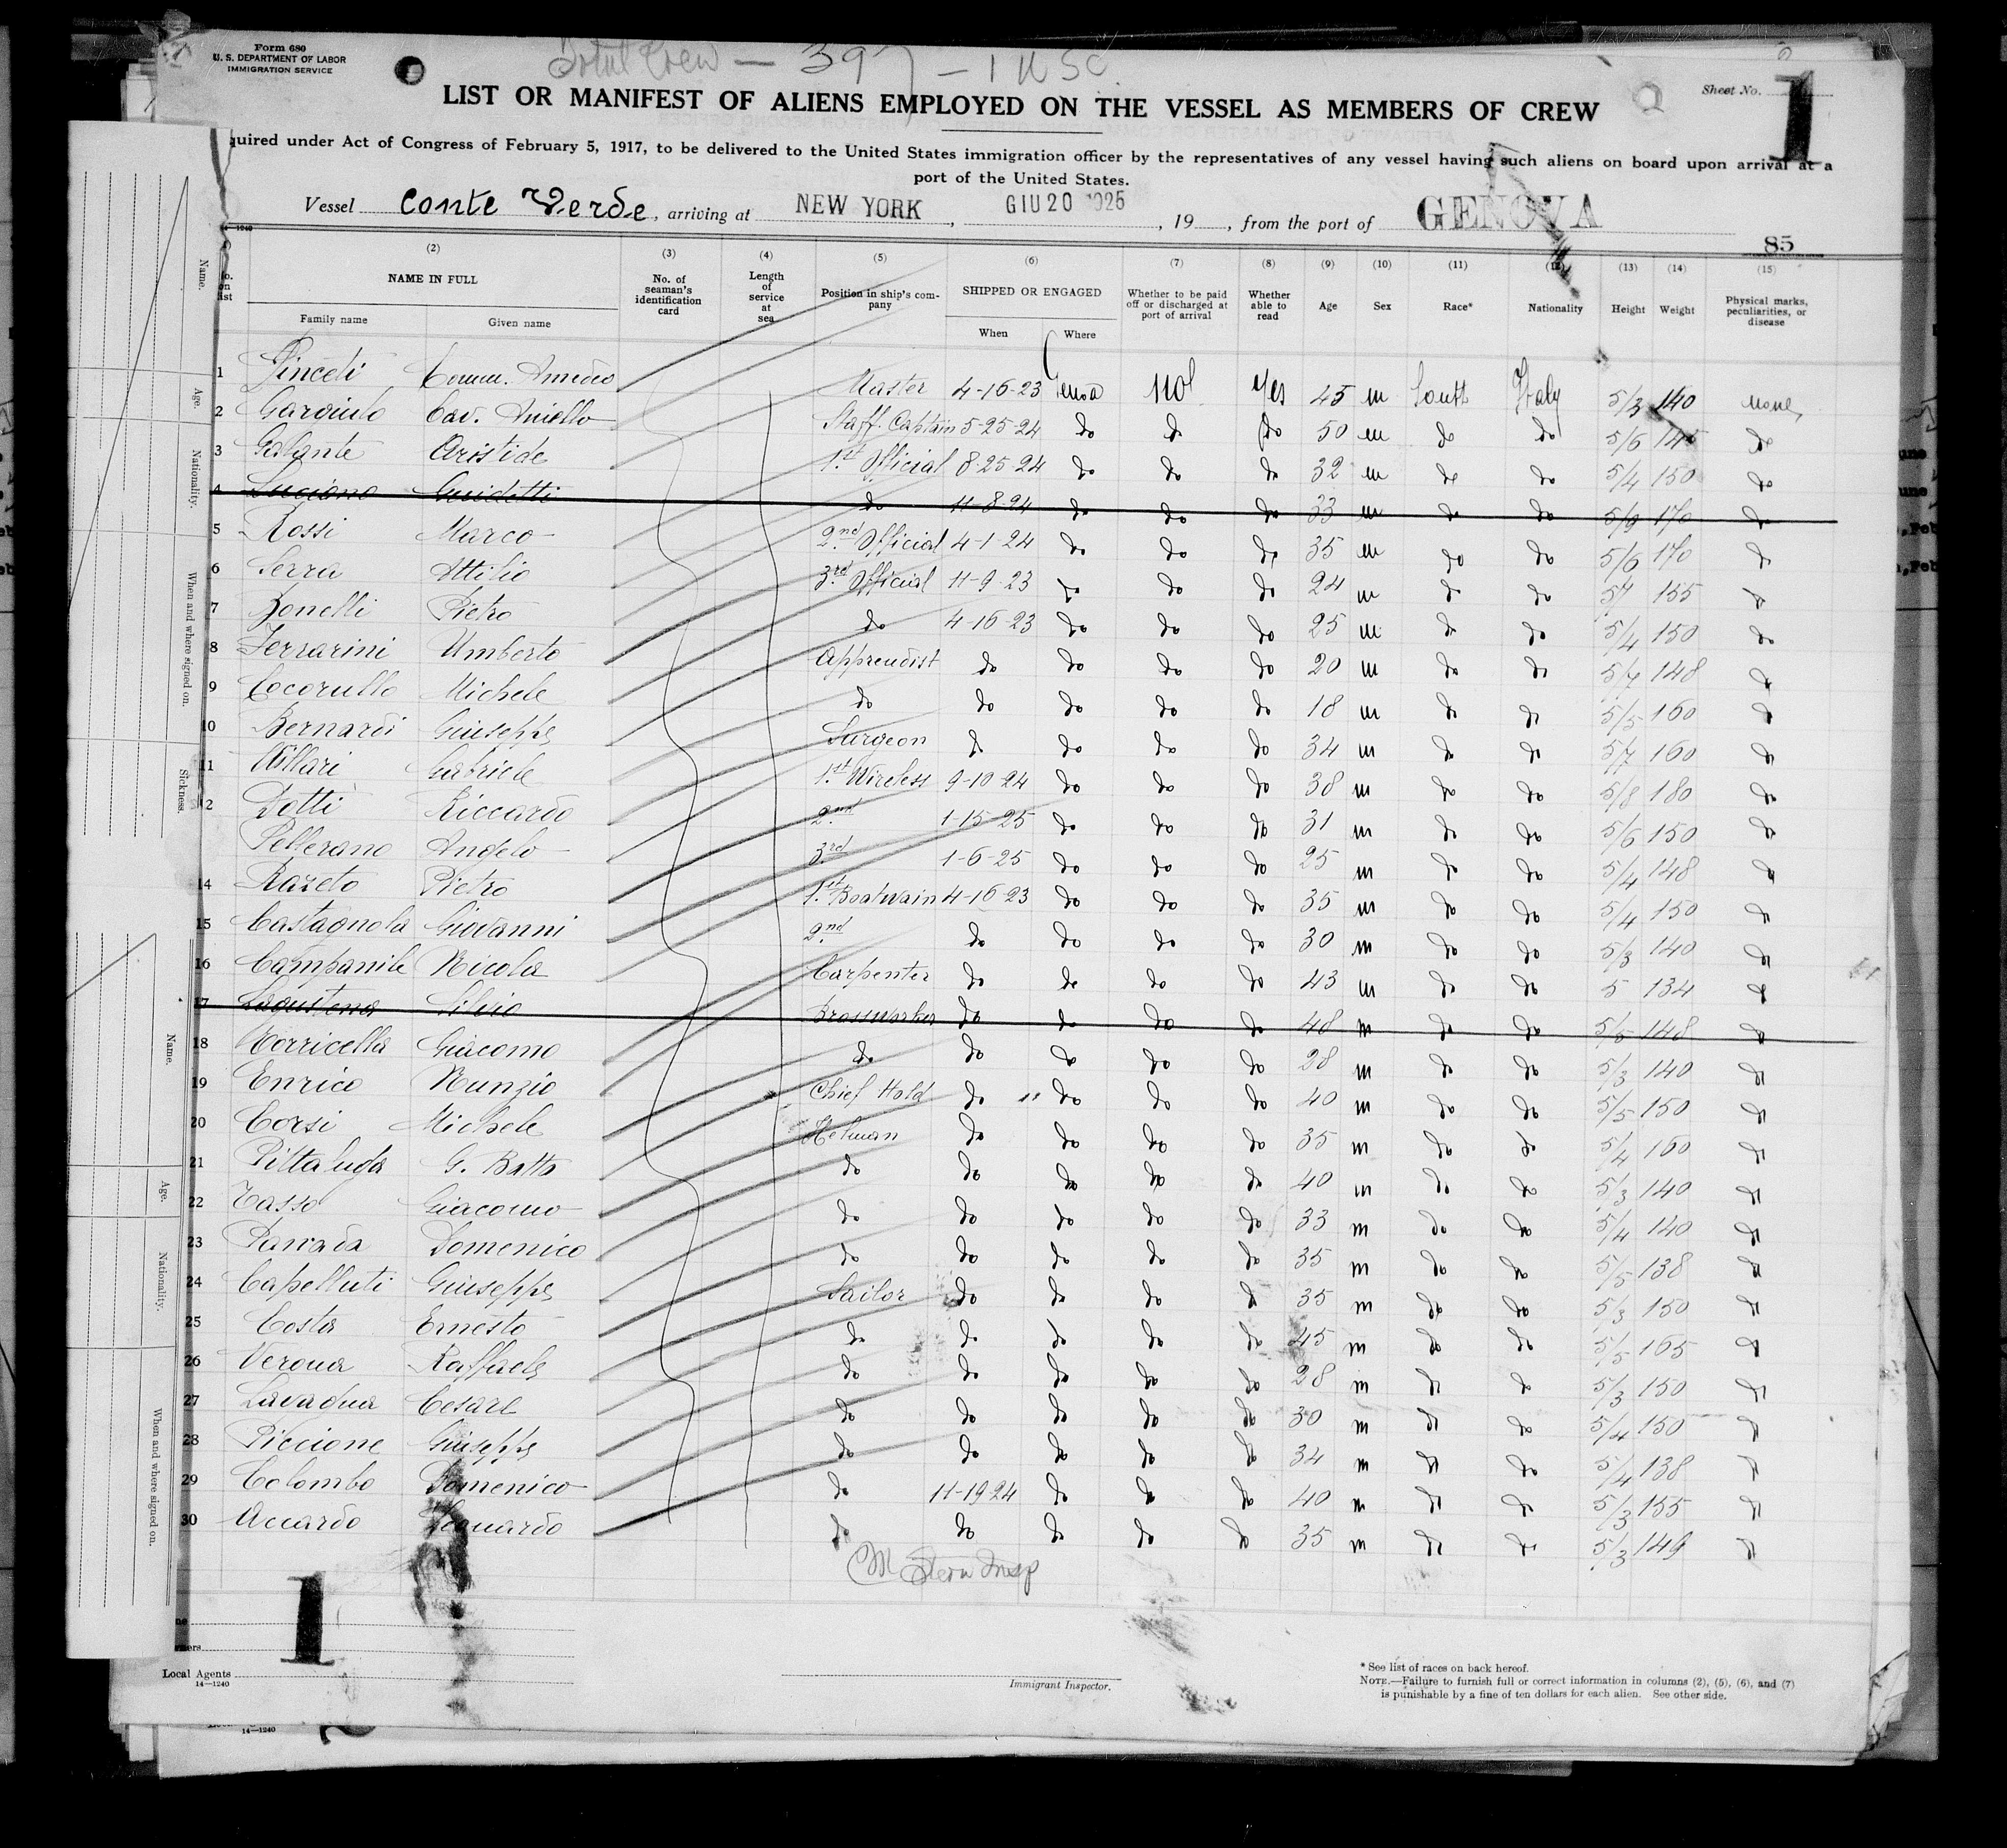 Form 680
U. S. DEPARTMENT OF LABOR
IMMIGRATION SERVICE
Total Crew — 397 — 1 U S C
Sheet No. 1
LIST OR MANIFEST OF ALIENS EMPLOYED ON THE VESSEL AS MEMBERS OF CREW
quired under Act of Congress of February 5, 1917, to be delivered to the United States immigration officer by the representatives of any vessel having such aliens on board upon arrival at a
port of the United States.
Vessel Conte Verde, arriving at NEW YORK, GIU 20 1925, 19, from the port of GENOVA
85
14—1240
(2) (3) (4) (5) (6) (7) (8) (9) (10) (11) (12) (13) (14) (15)
No. on list NAME IN FULL No. of seaman's identification card Length of service at sea Position in ship's company SHIPPED OR ENGAGED Whether to be paid off or discharged at port of arrival Whether able to read Age Sex Race* Nationality Height Weight Physical marks, peculiarities, or disease
Family name Given name When Where
1 Pinceti Comm. Amedeo Master 4-16-23 Genoa not Yes 45 m South Italy 5/3 140 none
2 Gargiulo Cav. Aniello Staff. Captain 5-25-24 do do do 50 m do do 5/6 145 do
3 Galante Aristide 1st Official 8-25-24 do do do 32 m do do 5/4 150 do
4 Luciano Guidetti do 11-8-24 do do do 33 m do do 5/9 170 do
5 Rossi Marco 2nd Official 4-1-24 do do do 35 m do do 5/6 170 do
6 Serra Attilio 3rd Official 11-9-23 do do do 24 m do do 5/7 155 do
7 Zonelli Pietro do 4-16-23 do do do 25 m do do 5/4 150 do
8 Ferrarini Umberto Apprendist do do do do 20 m do do 5/7 148 do
9 Cocorullo Michele do do do do do 18 m do do 5/5 160 do
10 Bernardi Giuseppe Surgeon do do do do 34 m do do 5/7 160 do
11 Villari Gabriele 1st Wireless 9-10-24 do do do 38 m do do 5/8 180 do
12 Dotti Riccardo 2nd 1-15-25 do do do 31 m do do 5/6 150 do
Pellerano Angelo 3rd 1-6-25 do do do 25 m do do 5/4 148 do
14 Razeto Pietro 1st Boatwain 4-16-23 do do do 35 m do do 5/4 150 do
15 Castagnola Giovanni 2nd do do do do 30 m do do 5/3 140 do
16 Campanile Nicola Carpenter do do do do 43 m do do 5 134 do
17 Lagustena Silvio Brassworker do do do do 48 m do do 5/5 148 do
18 Morricella Giacomo do do do do do 28 m do do 5/3 140 do
19 Enrico Nunzio Chief Hold do do do do 40 m do do 5/5 150 do
20 Corsi Michele Helman do do do do 35 m do do 5/4 160 do
21 Pittaluga G. Batta do do do do do 40 m do do 5/3 140 do
22 Tasso Giacomo do do do do do 33 m do do 5/4 140 do
23 Parrada Domenico do do do do do 35 m do do 5/5 138 do
24 Capelluti Giuseppe Sailor do do do do 35 m do do 5/3 150 do
25 Costa Ernesto do do do do do 45 m do do 5/5 165 do
26 Verona Raffaele do do do do do 28 m do do 5/3 150 do
27 Lavagna Cesare do do do do do 30 m do do 5/4 150 do
28 Piccione Giuseppe do do do do do 34 m do do 5/4 138 do
29 Colombo Domenico do 11-19-24 do do do 40 m do do 5/3 155 do
30 Accardo Leonardo do do do do do 35 m do do 5/3 149 do
M Stern Insp
1
Local Agents
14—1240
Immigrant Inspector.
* See list of races on back hereof.
NOTE.—Failure to furnish full or correct information in columns (2), (5), (6), and (7)
is punishable by a fine of ten dollars for each alien. See other side.
14—1240
Name.
Age.
Nationality.
When and where signed on.
Sickness.
Name.
Age.
Nationality.
When and where signed on.